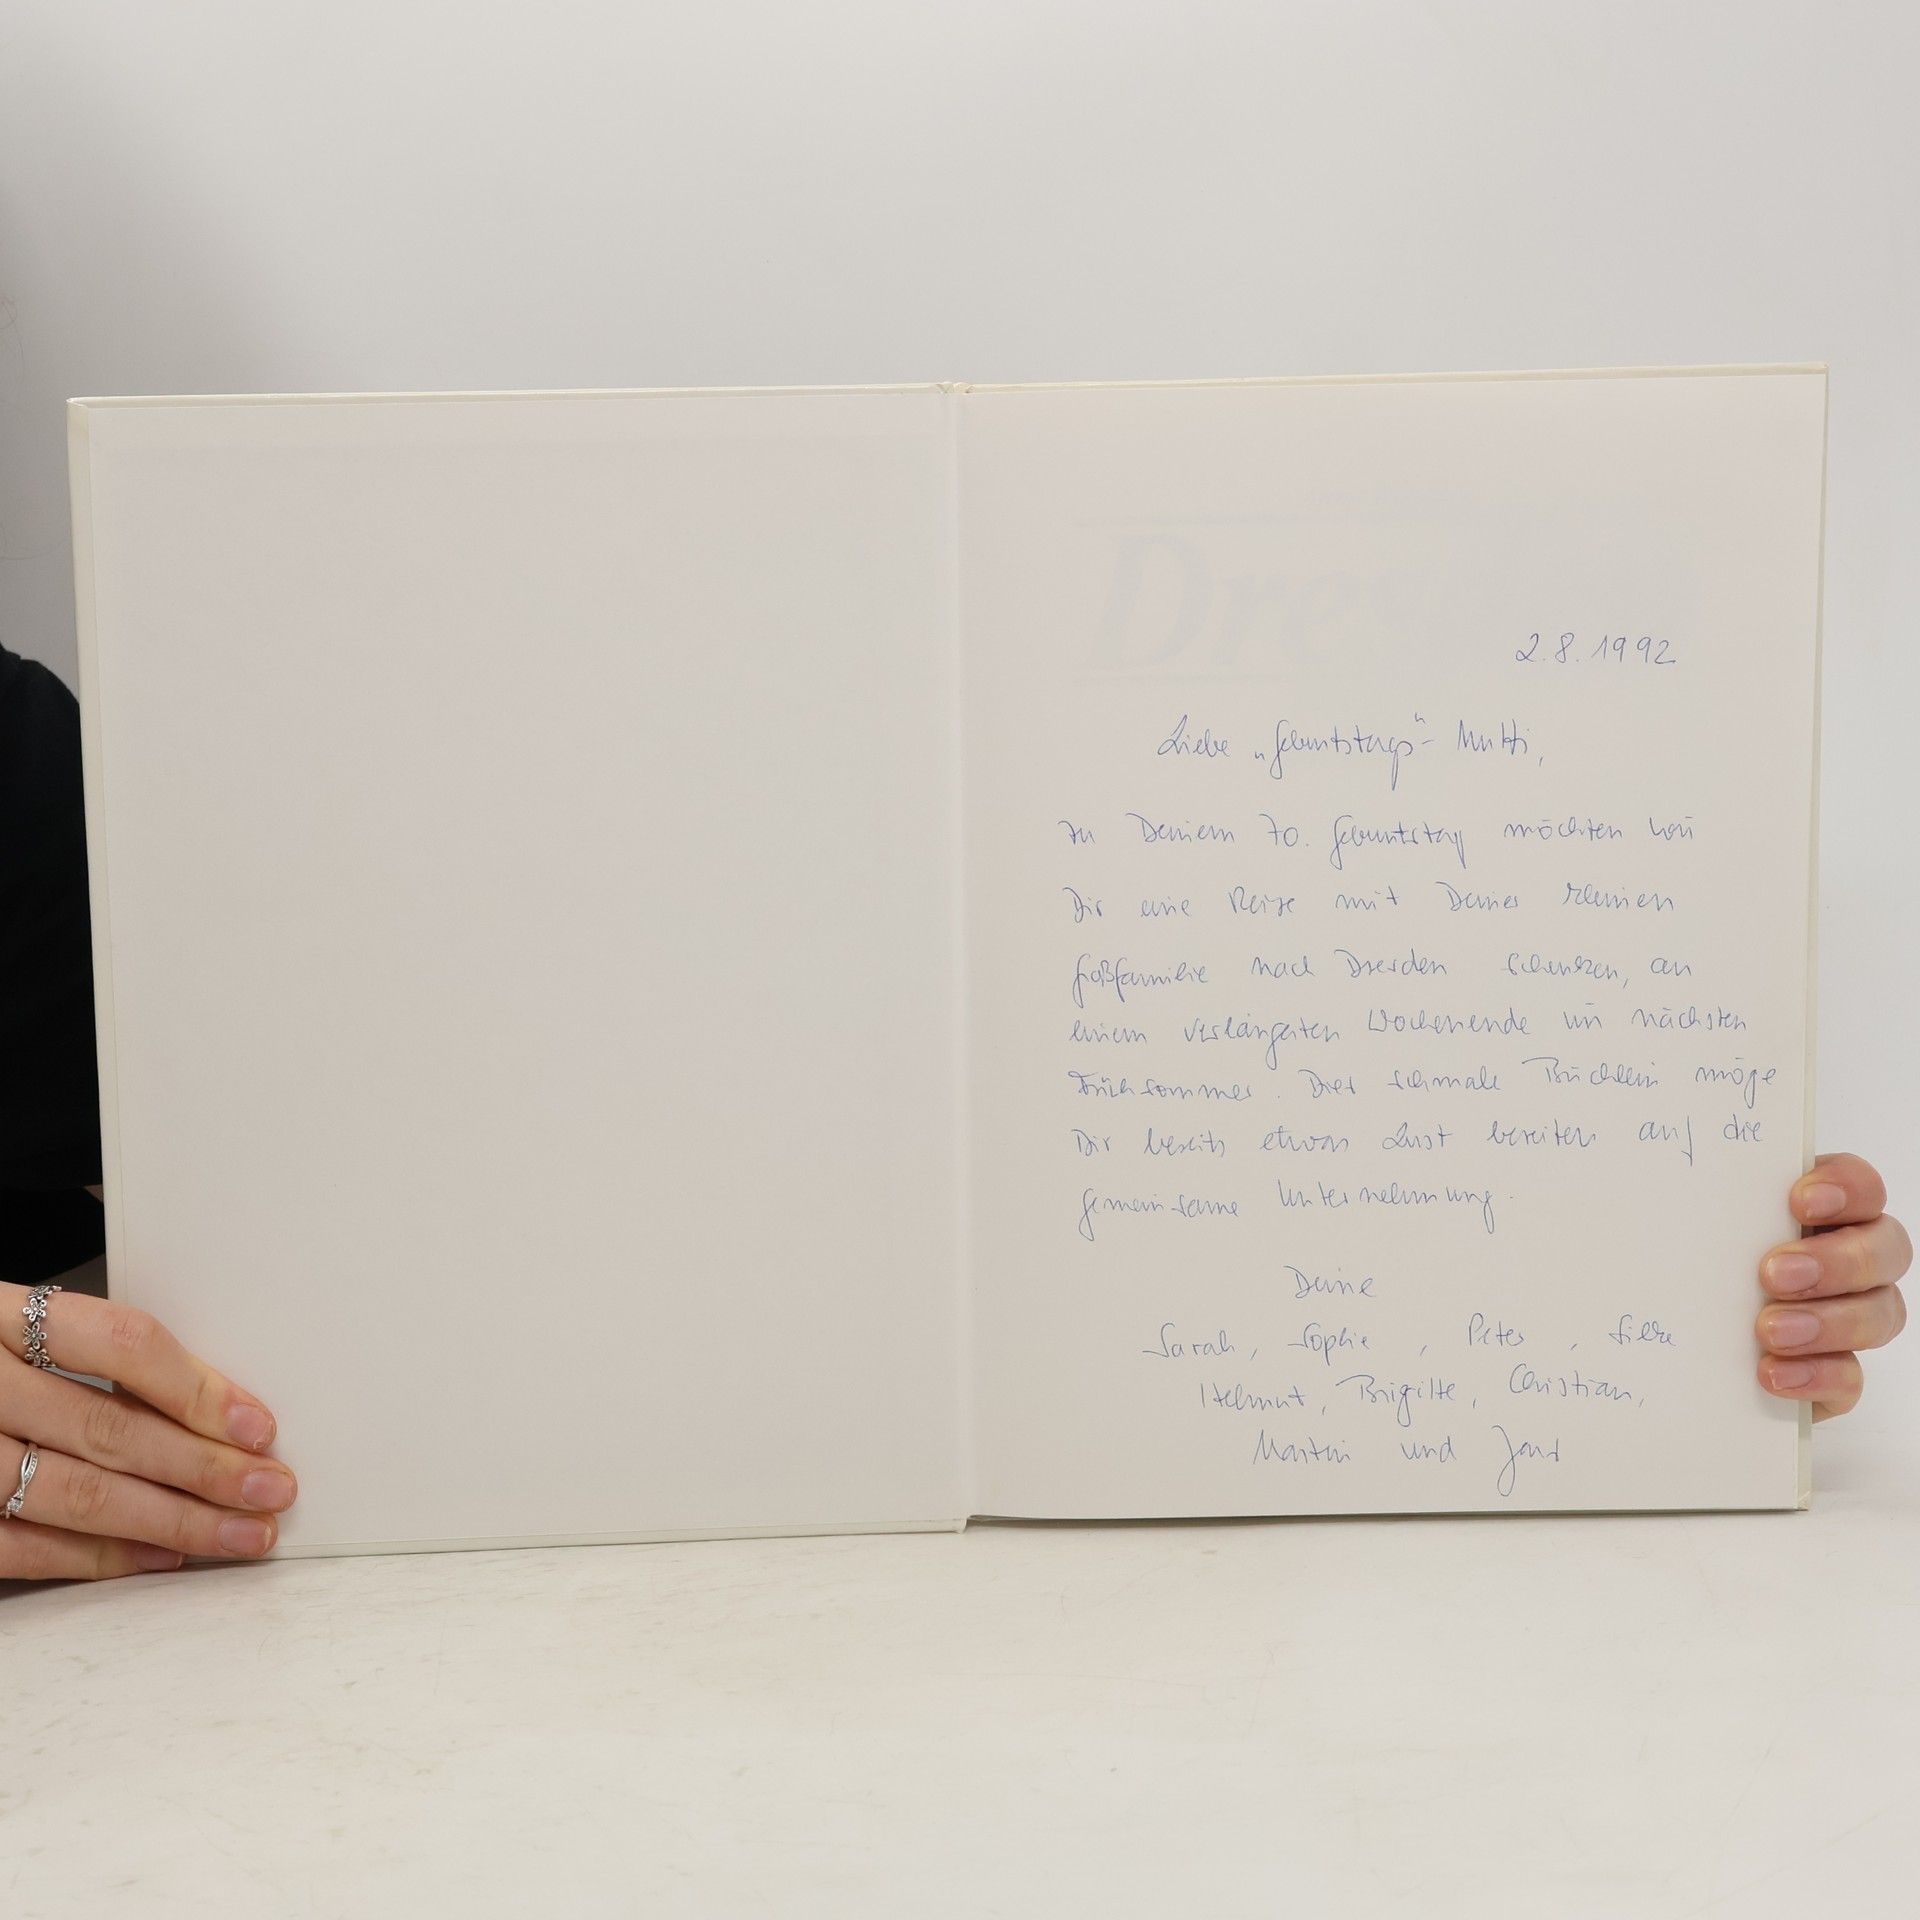 Dres
2.8.1992
Liebe „Geburtstags"- Mutti,
zu Deinem 70. Geburtstag möchten wir
Dir eine Reise mit Deiner kleinen
Großfamilie nach Dresden schenken, an
einem verlängerten Wochenende im nächsten
Frühsommer. Dies schmale Büchlein möge
Dir bereits etwas Lust bereiten auf die
gemeinsame Unternehmung.
Deine
Sarah, Sophie, Peter, Silke
Helmut, Brigitte, Christian,
Martin und